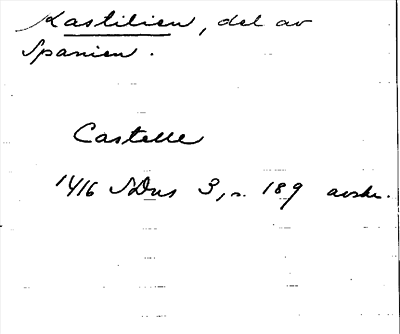 Kastilien, del av
Spanien.
Castelle
1416 SDns 3, s. 189 avskr.